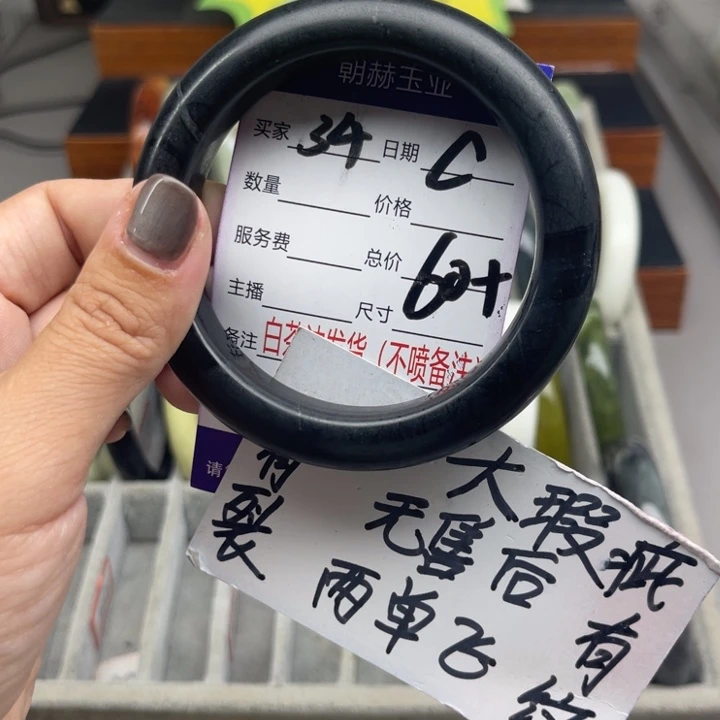 朝赫玉业
买家 34 日期 C
数量 价格
服务费 总价 60+
主播 尺寸
备注 白茶油发货(不喷备注)
请
有裂
大瑕疵
无售后
有纹
两单飞